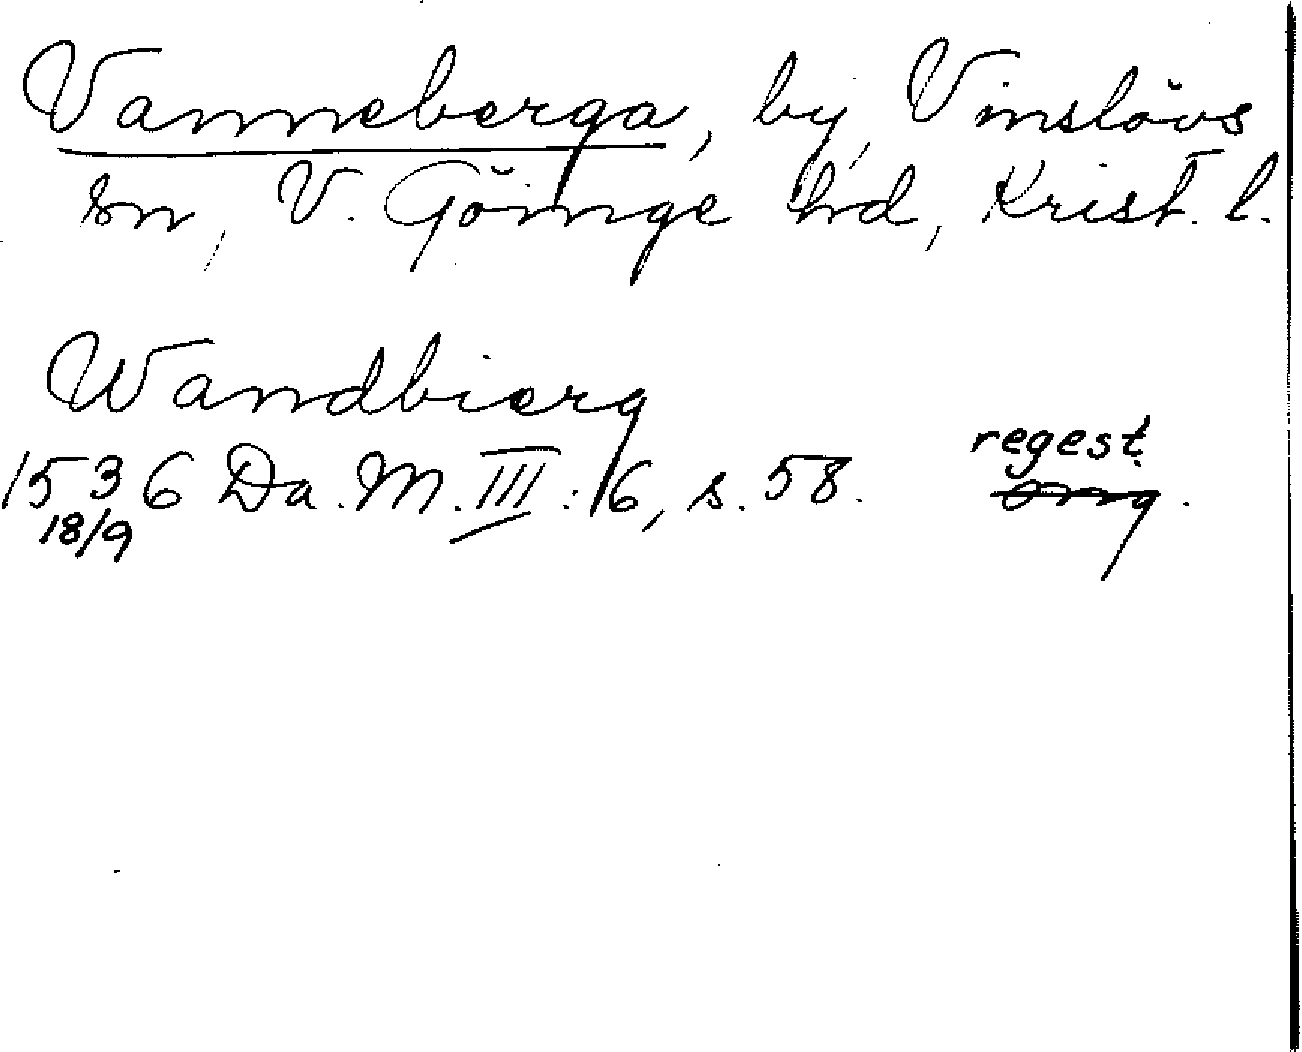 Vanneberga, by, Vinslövs
sn, V. Göinge hd, Krist. l.
Wandbierg
regest.
1536 Da. M. III: 6, s. 58. orig.
18/9